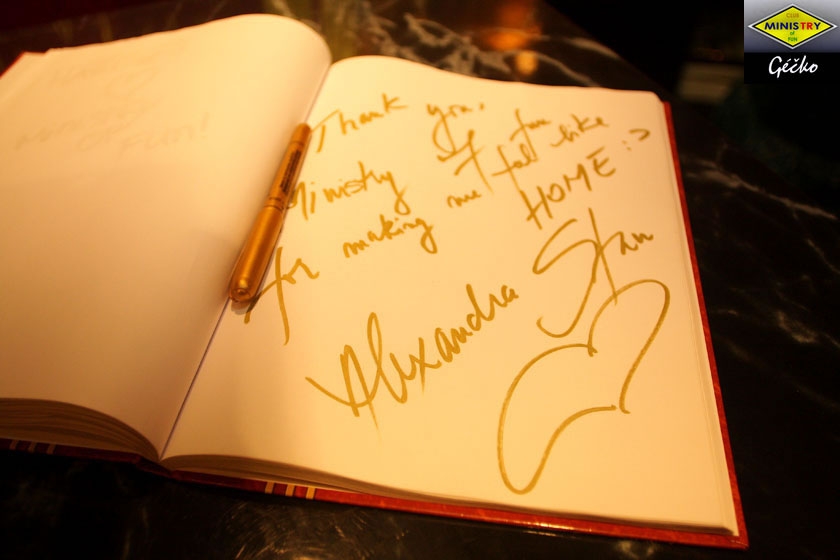 CLUB
MINISTRY
of
FUN
Géčko
MINISTRY
OF FUN!
Thank you,
Ministry of fun
for making me feel like
HOME :>
Alexandra Stan